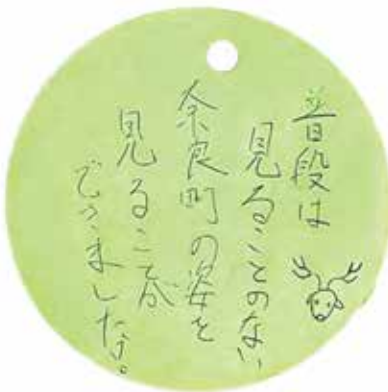 普段は
見ることのない
奈良町の姿を
見ることが
できました。